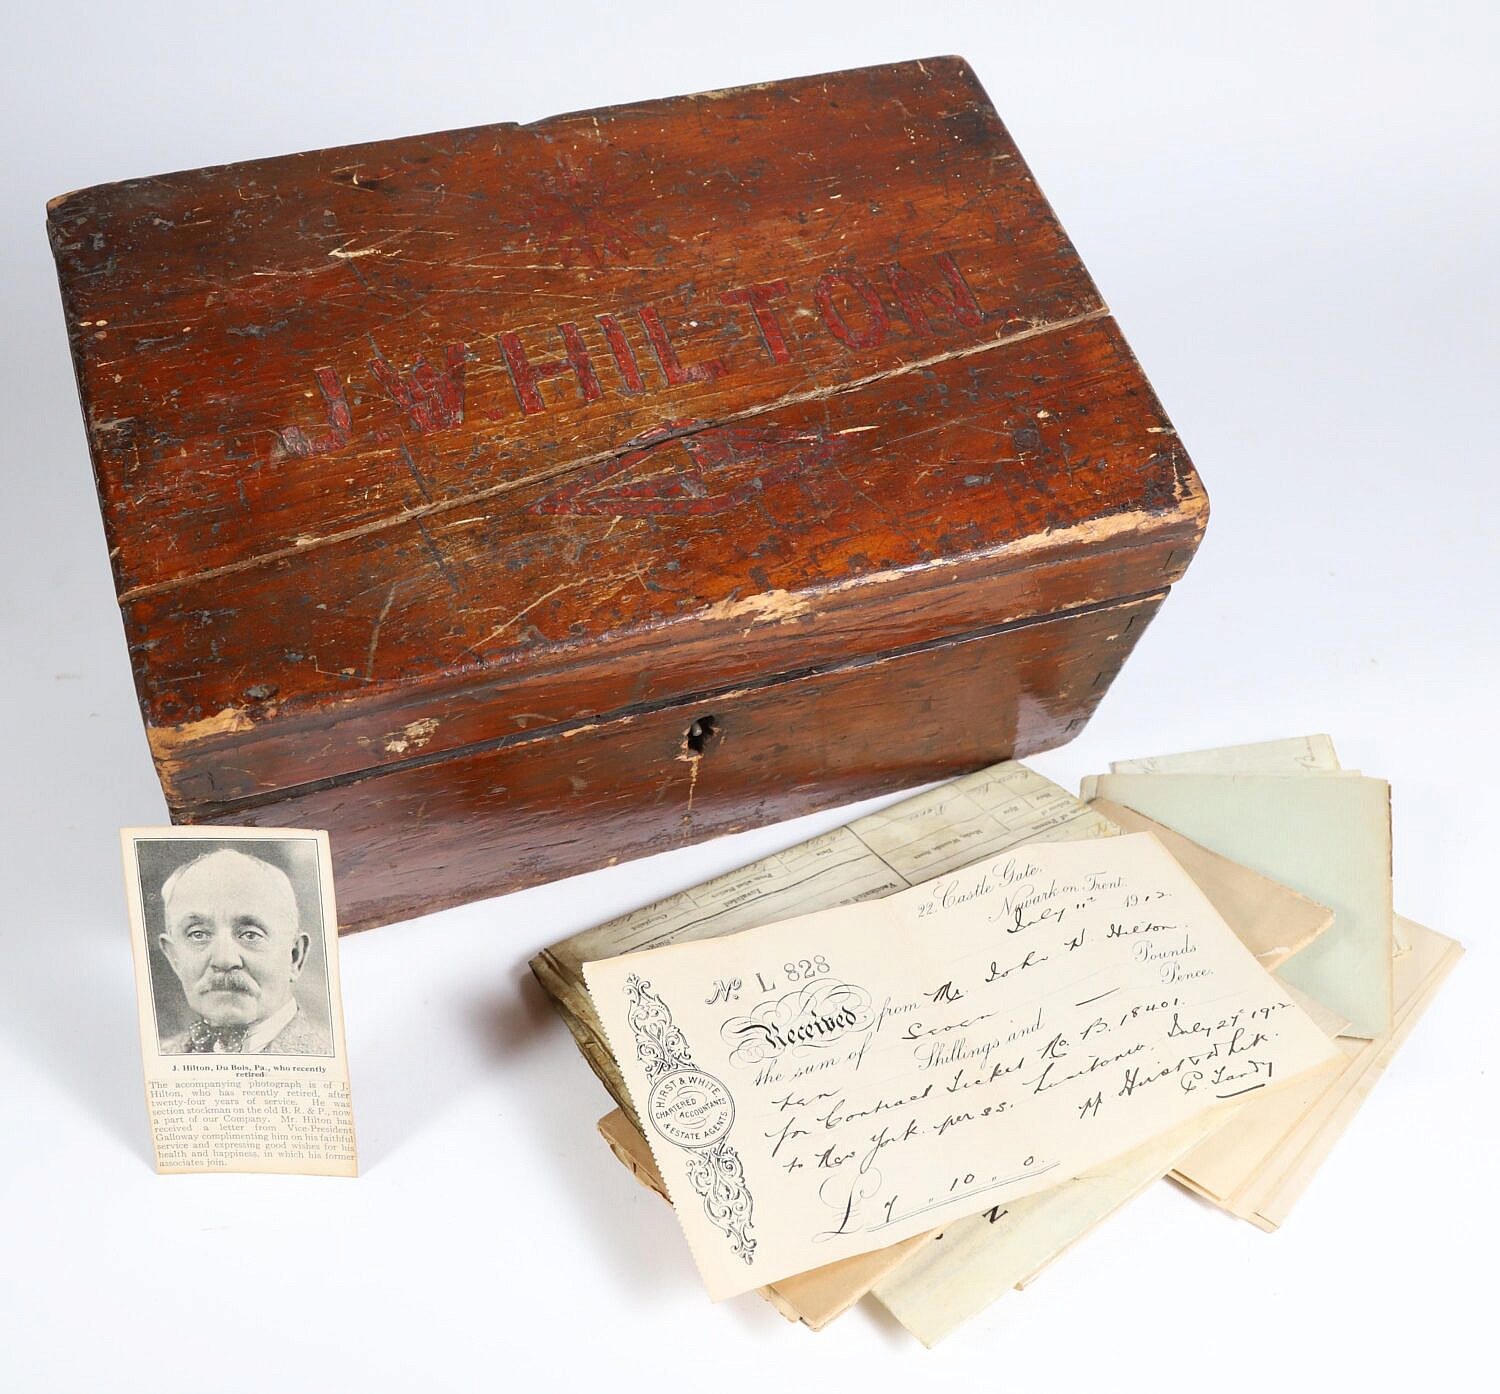 J.W.HILTON
J. Hilton, Du Bois, Pa., who recently
retired
The accompanying photograph is of J.
Hilton, who has recently retired, after
twenty-four years of service. He was
section stockman on the old B. R. & P., now
a part of our Company. Mr. Hilton has
received a letter from Vice-President
Galloway complimenting him on his faithful
service and expressing good wishes for his
health and happiness, in which his former
associates join.
22, Castle Gate,
Newark on Trent.
July 11th 1912
No L 828
Received from Mr. John W. Hilton.
the sum of Seven Pounds
ten Shillings and — Pence.
for Contract Ticket No. B. 18401.
to New York. per ss. Lusitania. July 27th 1912.
pp Hirst & White.
£ 7 " 10 " 0.
HIRST & WHITE
CHARTERED ACCOUNTANTS
& ESTATE AGENTS